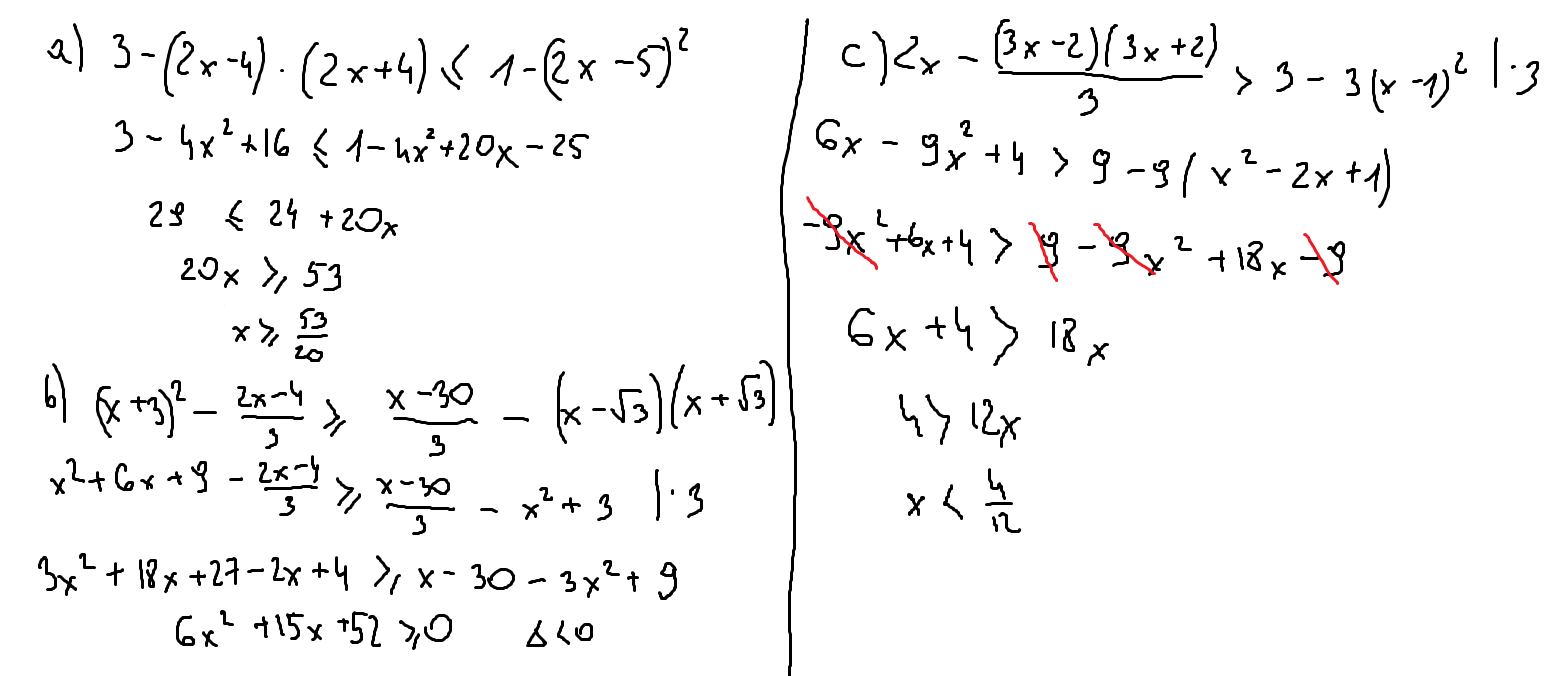 a) 3-(2x-4)·(2x+4) ≤ 1-(2x-5)²
3 - 4x² + 16 ≤ 1 - 4x² + 20x - 25
29 ≤ 24 + 20x
20x ≥ 53
x ≥ 53/20
b) (x+3)² - (2x-4)/3 ≥ (x-30)/3 - (x-√3)(x+√3)
x² + 6x + 9 - (2x-4)/3 ≥ (x-30)/3 - x² + 3 |·3
3x² + 18x + 27 - 2x + 4 ≥ x - 30 - 3x² + 9
6x² + 15x + 52 ≥ 0 Δ<0
c) 2x - (3x-2)(3x+2)/3 > 3 - 3(x-1)² |·3
6x - 9x² + 4 > 9 - 9(x² - 2x + 1)
-9x² + 6x + 4 > 9 - 9x² + 18x - 9
6x + 4 > 18x
4 > 12x
x < 4/12